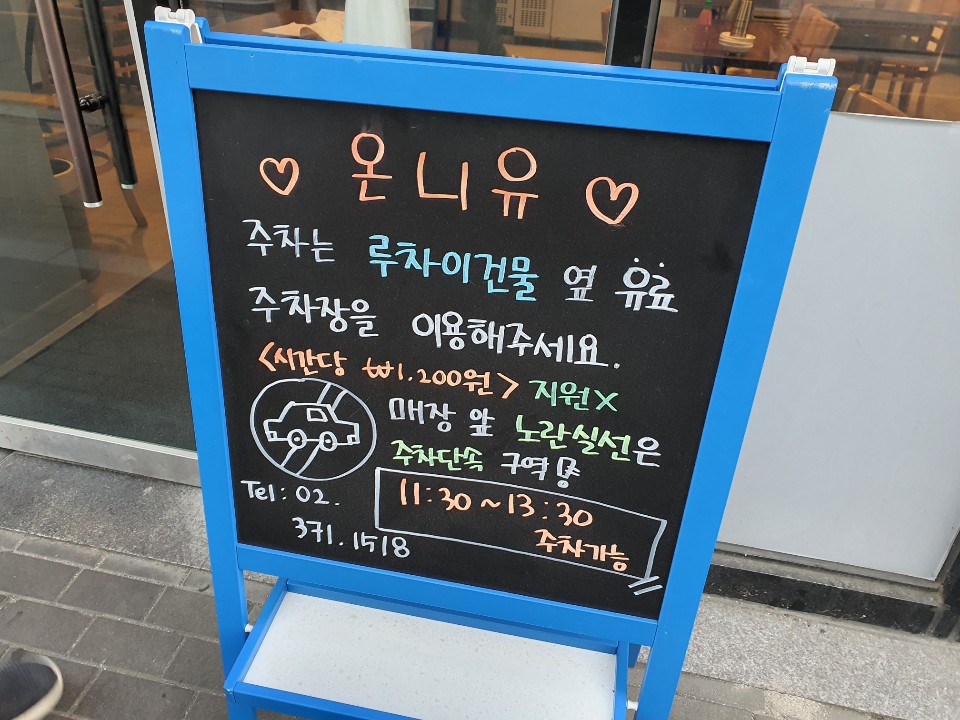 ♡ 온니유 ♡
주차는 루차이건물 옆 유료
주차장을 이용해주세요.
<시간당 ₩1,200원> 지원X
매장 앞 노란실선은
주차단속 구역!
11:30~13:30
주차가능
Tel: 02.
371.1518